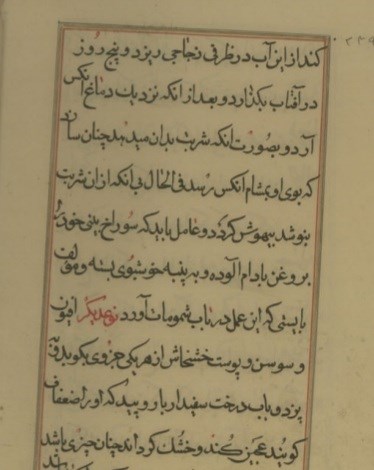 کند ازین آب در ظرفی زجاجی ریزد و پنج روز
در آفتاب بگذارد و بعد از انکه نزدیک دماغ انکس
آرد و بصورت انکه شربت بدان میدهد چنان سان
که بوی او بمشام انکس رسد فی الحال بی انکه ازان شربت
بنوشد بیهوش کردد و عامل باید که سوراخ بینی خود را
بروغن بادام آلوده و به پنبه خوشبوی بسته و مولف
بایستی که این عمل در باب شمومات آورد نوعدیکر افیون
و سوسن و پوست خشخاش از هر یکی جزوی بکوبد و
یزد و باب درخت سفیدار بار و بید که او را ضعفاف
کویند عجین کند و خشک کرداند چنان چیزی باشد